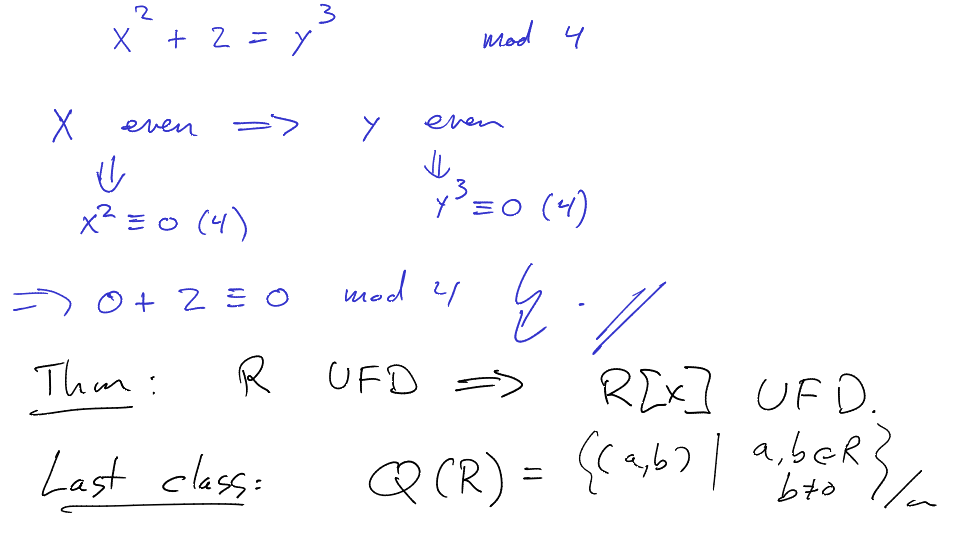 x² + 2 = y³ mod 4
X even ⟹ y even
⇓ ⇓
x² ≡ 0 (4) y³ ≡ 0 (4)
⟹ 0 + 2 ≡ 0 mod 4 ↯ . //
Thm: R UFD ⟹ R[x] UFD.
Last class: Q(R) = {(a,b) | a,b∈R b≠0}/~